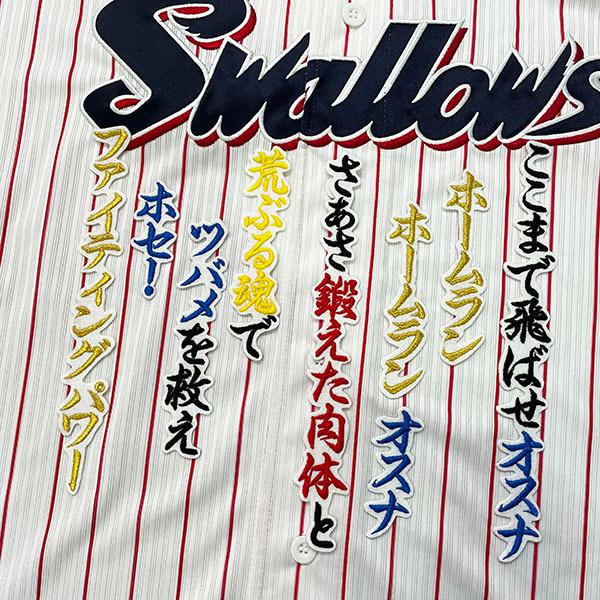 Swallows
ここまで飛ばせオスナ
ホームラン
ホームランオスナ
さあさ鍛えた肉体と
荒ぶる魂で
ツバメを救え
ホセ!
ファイティングパワー